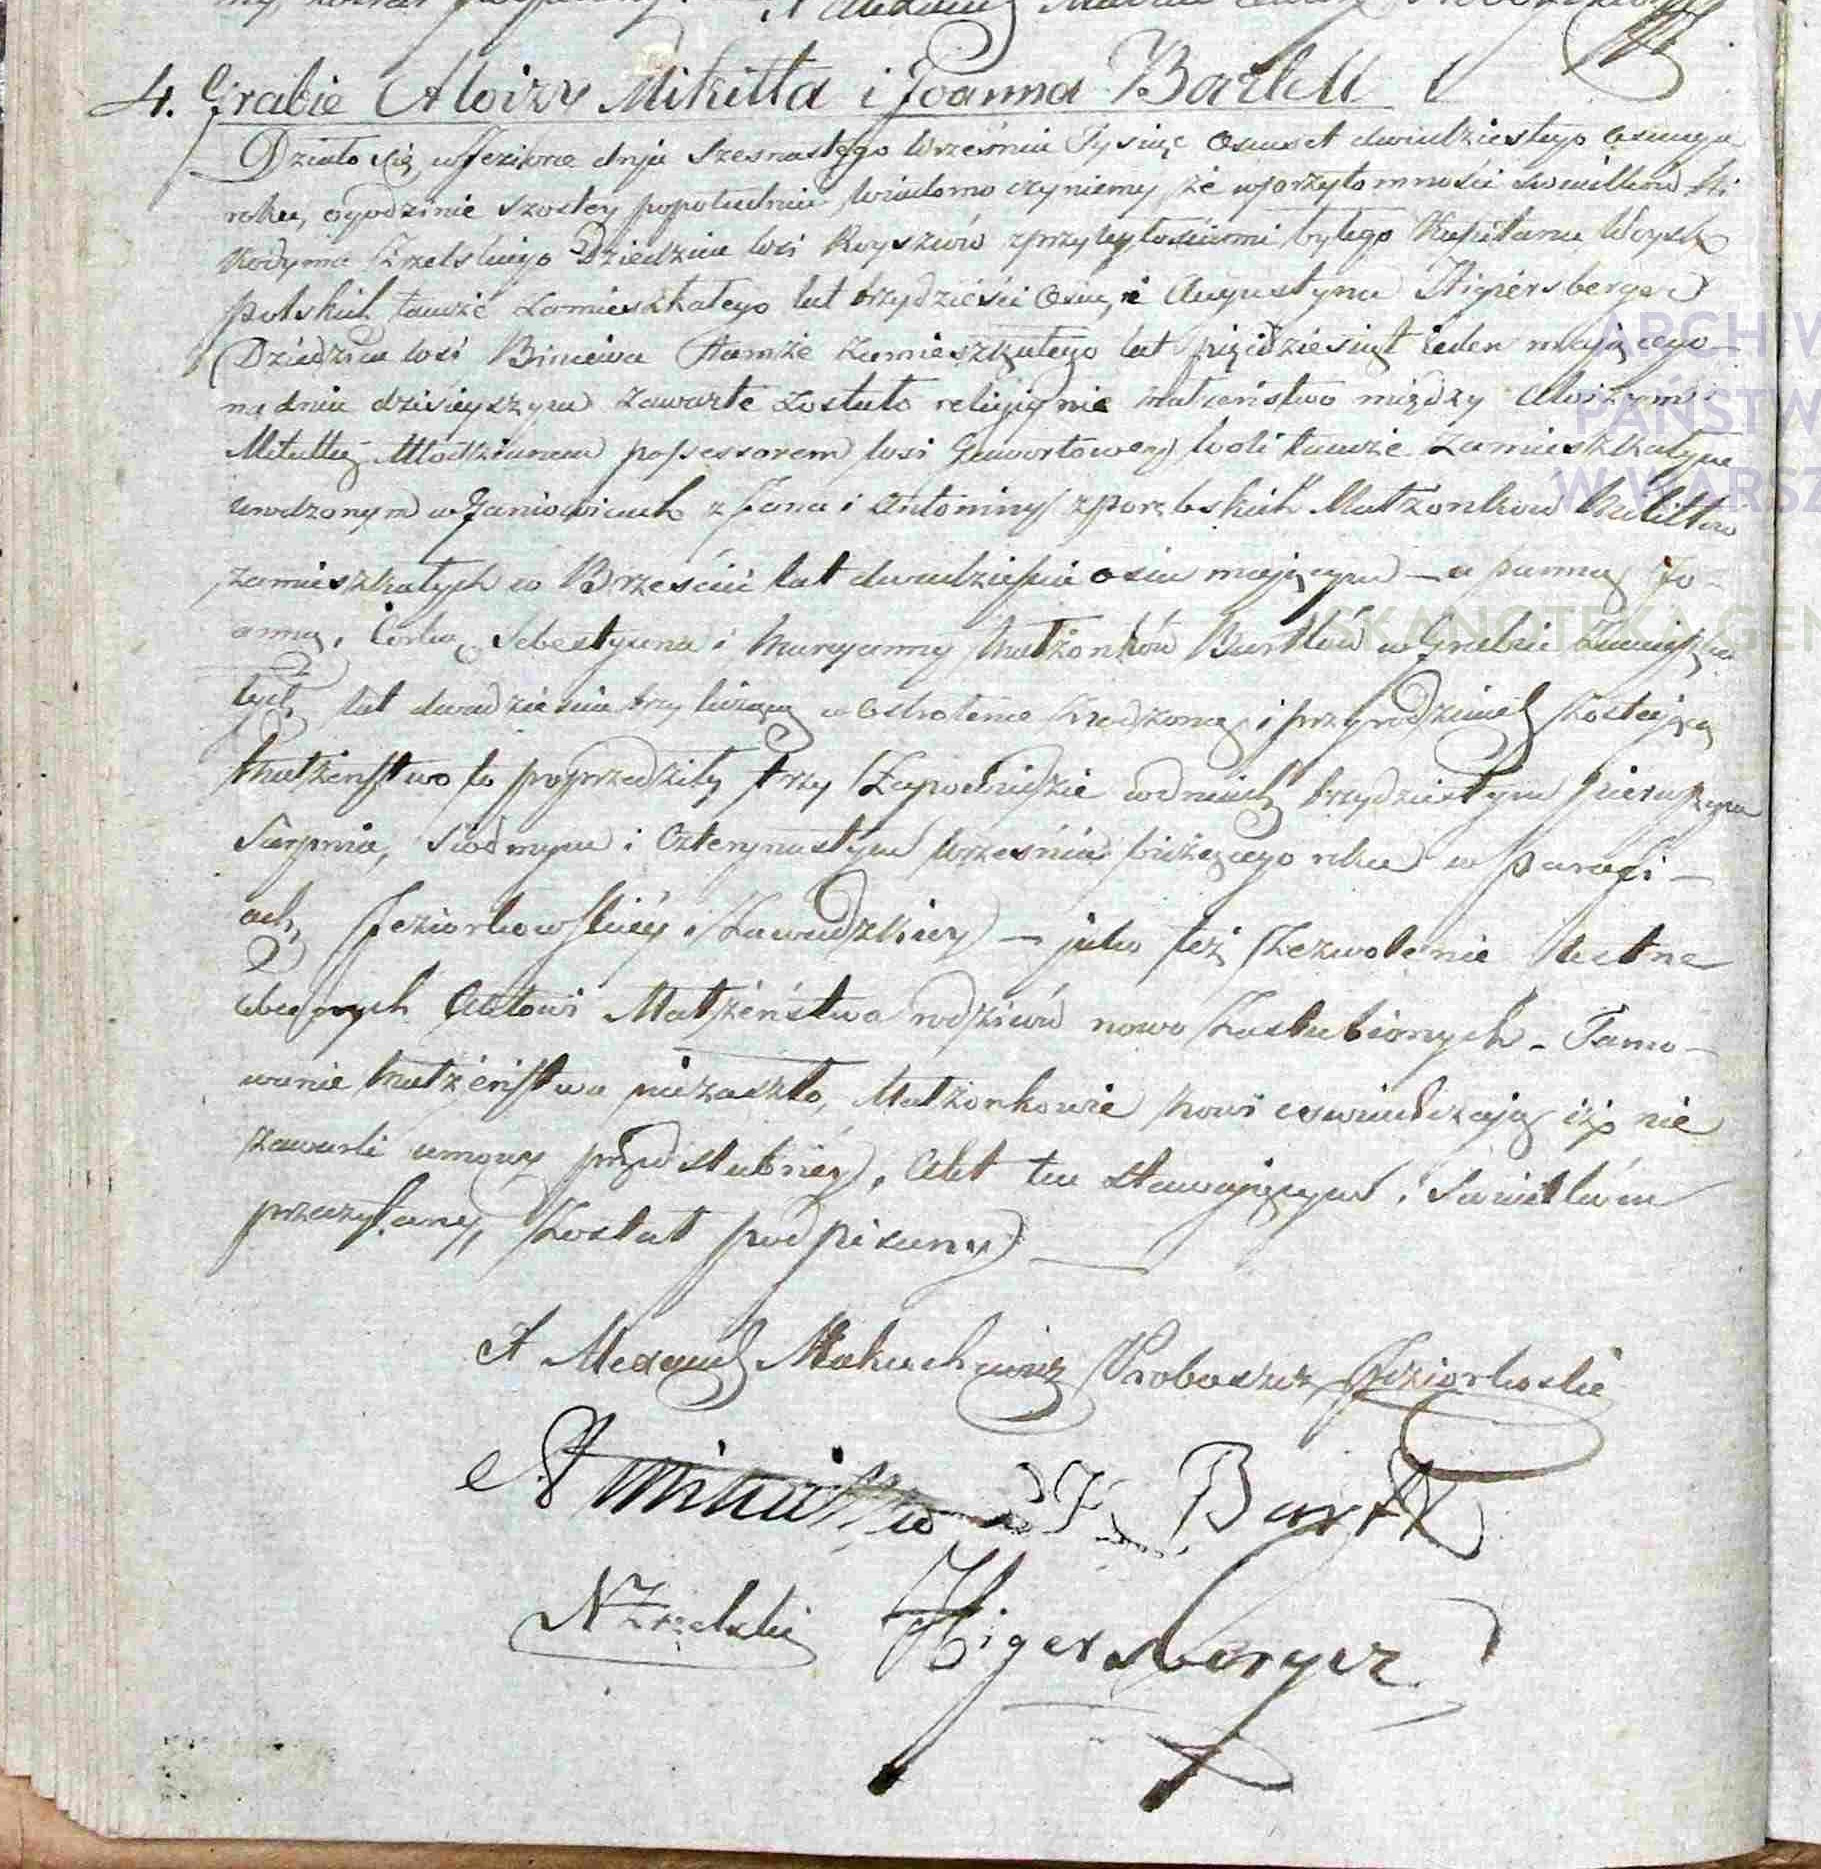 4. Grabie Aloizy Mikitta i Joanna Bartell
Działo się w Jeziorne dnia Szesnastego Września Tysiąc Osmset dwudziestego Osmego
roku, o godzinie szostey popołudniu wiadomo czyniemy, że w przytomności świadków Ni
kodyma Zrzelskiego Dziedzica wsi z przyległościami byłego Kapitana Woysk
polskich tamże zamieszkałego lat trzydzieści Osm, i Augustyna Higiersberger
Dziedzica wsi Biniewa tamże zamieszkałego lat pięćdziesiąt ieden maiącego
na dniu dzisieyszym zawarte zostało religijnie małżeństwo między Aloizym
Młodzianem possessorem wsi woli tamże zamieszkałym
urodzonym w Janiowicach z Jana i Antoniny z Porębskich Małżonków
zamieszkałych w Brześciu lat dwadzieścia osm maiącym – a panną Jo-
anną, Corką Sebestyana i Maryanny Małżonków Bartlów w Grabiu Zamieszka
łych, lat dwadzieścia trzy liczącą w Ostrołęce zrodzoną i przy rodzicach zostaiącą
Małżeństwo to poprzedziły trzy Zapowiedzie w dniach trzydziestym pierwszym
Sierpnia, Siódmym i Czternastym września bieżącego roku w Parafi-
ach Jeziorkowskiéy i Zawadzkiey – jako też Zezwolenie ustne
obecnych Aktowi Małżeństwa rodziców nowo Zaślubionych – Tamo-
wanie Małżeństwa niezaszło, Małżonkowie nowi oswiadczaią iż nie
zawarli umowy przedślubnéy, Akt ten stawaiącym i Swiadkom
przeczytany, Został podpisany
X Alexand Makuchowicz Proboszcz Jeziorkoskie
A Mikitta J Bartll
N Zrzelski Higersberger
ARCHIW
PAŃSTW
W WARSZ
SKANOTEKA GEN